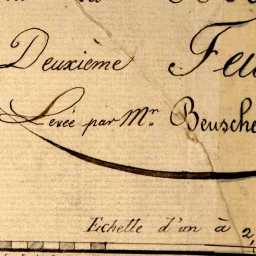 Deuxième Feu
Levée par Mr. Beusche
Echelle d'un à 2,